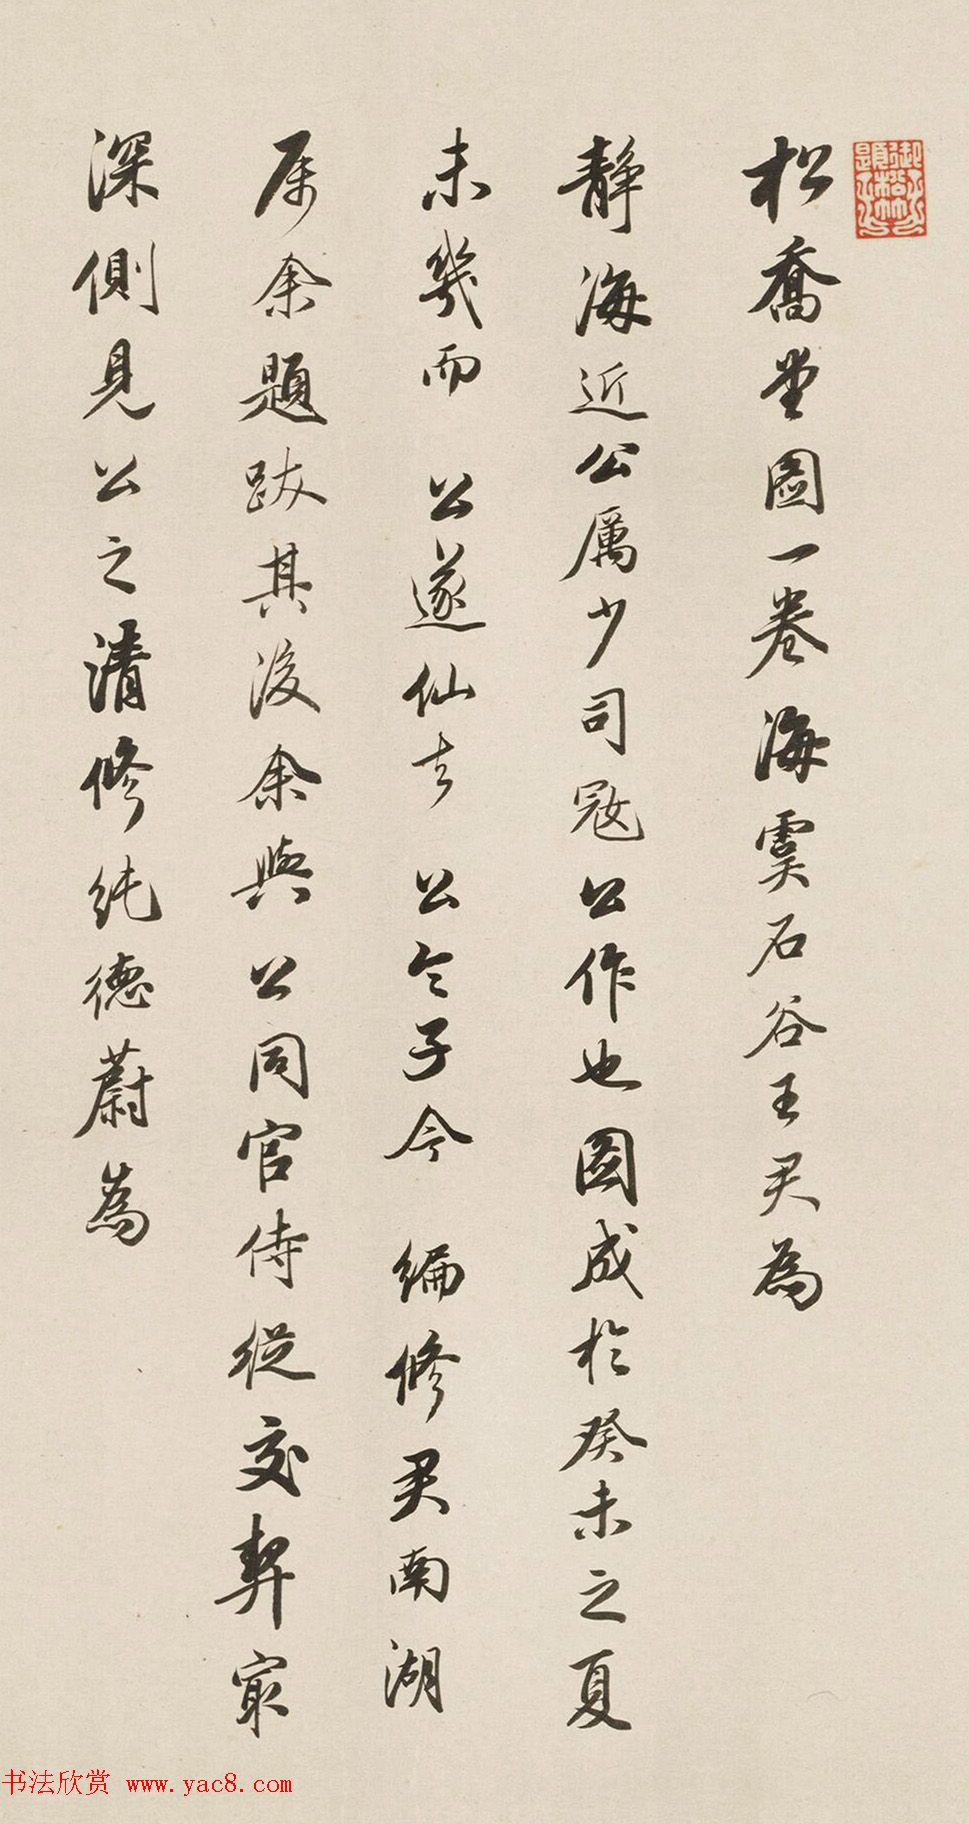 松喬堂圖一卷海虞石谷王君為
靜海近公厲少司寇公作也圖成於癸未之夏
未幾而 公遂仙去 公令子今 編修君南湖
属余題跋其後余與 公同官侍從交契寂
深側見公之清修純德蔚為
书法欣赏 www.yac8.com